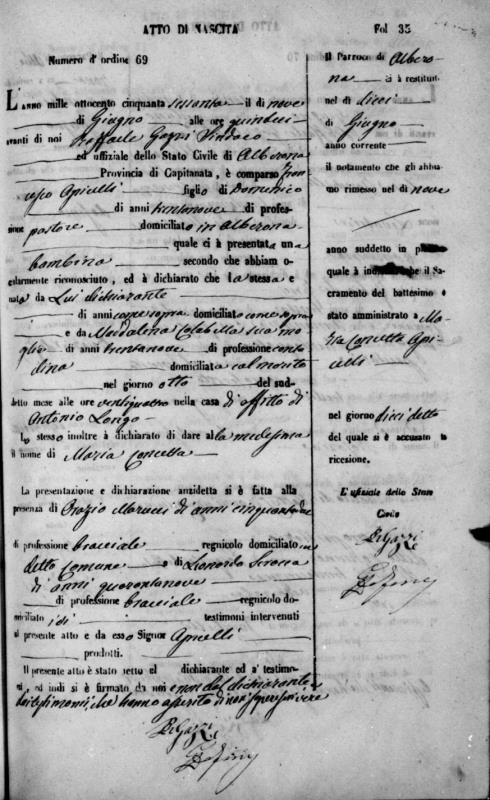 ATTO DI NASCITA
Fol 35
Numero d'ordine 69
L'anno mille ottocento cinquanta sessanta il dì nove
di Giugno alle ore quindici
avanti di noi Raffaele Gazzi Sindaco
ed uffiziale dello Stato Civile di Alberona
Provincia di Capitanata, è comparso Fran
figlio di Domenico
di anni trentanove di profes-
sione pastore domiciliato in Alberona
quale ci à presentata una
bambina secondo che abbiam o-
cularmente riconosciuto, ed à dichiarato che la stessa e
nata da Lui dichiarante
di anni come sopra domiciliato come sopra
e da Maddalena Colabella sua mo
glie di anni trentanove di professione conta
dina domiciliata col marito
nel giorno otto del sud-
detto mese alle ore ventiquattro nella casa di affitto di
Antonio Longo
Lo stesso inoltre à dichiarato di dare alla medesima
il nome di Maria Concetta
La presentazione e dichiarazione anzidetta si è fatta alla
presenza di Orazio Marucci di anni
di professione bracciale regnicolo domiciliato in
detto Comune e di Leonardo
di anni quarantanove
di professione bracciale regnicolo do-
miciliato idi testimoni intervenuti
al presente atto e da esso Signor
prodotti.
Il presente atto è stato letto al dichiarante ed a' testimo-
ni, ed indi si è firmato da noi e non dal dichiarante e
dai testimonii, che hanno asserito di non sapere scrivere
Il Parroco di Albero-
na ci à restituit
nel dì dieci
di Giugno
anno corrente
il notamento che gli abbia-
mo rimesso nel dì nove
anno suddetto in
quale à che il Sa-
cramento del battesimo è
stato amministrato a Ma-
ria Concetta
nel giorno dieci detto
del quale si è accusato la
ricezione.
L'ufiziale dello Stato
Civile